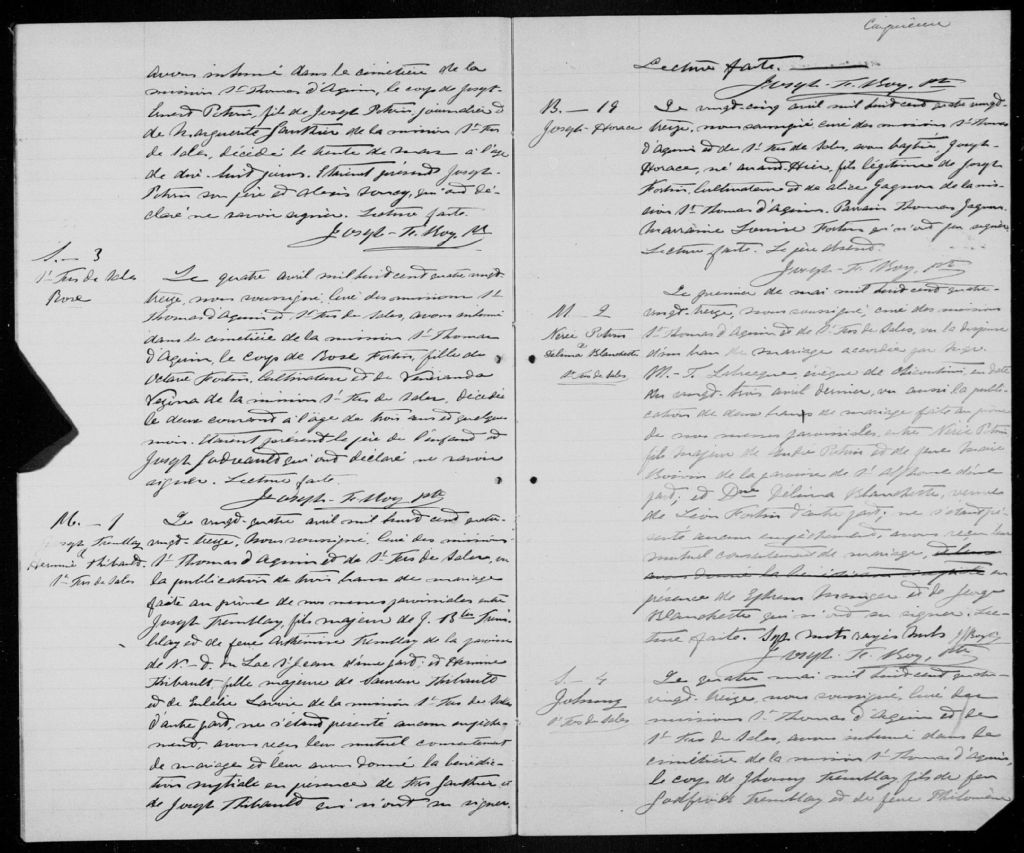 avons inhumé dans le cimetière de la
mission St Thomas d'Aquin, le corps de Joseph-
Ernest Potvin, fils de Joseph Potvin, journalier et
de Marguerite Gauthier de la mission St Frs
de Sales, décédé le trente de mars à l'âge
de dix-huit jours. Étaient présents Joseph
Potvin son père et Alexis qui ont dé-
claré ne savoir signer. Lecture faite.
Joseph-F. Roy, Ptre
S. - 3
St Frs de Sales
Rose
Le quatre avril mil huit cent quatre vingt-
treize, nous soussigné, curé des missions St
Thomas d'Aquin et St Frs de Sales, avons inhumé
dans le cimetière de la mission St Thomas
d'Aquin, le corps de Rose Fortin, fille de
Octave Fortin, cultivateur et de Veneranda
Vezina de la mission St Frs de Sales, décédée
le deux courant à l'âge de trois ans et quelques
mois. Étaient présents le père de l'enfant et
Joseph qui ont déclaré ne savoir
signer. Lecture faite.
Joseph-F. Roy Ptre
M. - 1
Joseph Tremblay
à
Herminie Thibault
St Frs de Sales
Le vingt-quatre avril mil huit cent quatre-
vingt-treize, Nous soussigné, curé des missions
St Thomas d'Aquin et de St Frs de Sales, vu
la publication de trois bans de mariage
faite au prône de nos messes paroissiales entre
Joseph Tremblay, fils majeur de J. Bte Trem-
blay et de feue Arthémise Tremblay de la paroisse
de N.-D. du Lac St Jean d'une part; et Hermine
Thibault fille majeure de Sauveur Thibault
et de Eulalie Lavoie de la mission St Frs de Sales
d'autre part, ne s'étant présenté aucun empêche-
ment, avons reçu leur mutuel consentement
de mariage et leur avons donné la bénédic-
tion nuptiale en présence de Frs Gauthier et
de Joseph Thibault qui n'ont su signer.
Lecture faite.
Joseph-F. Roy, Ptre
B. - 19
Joseph-Horace
Le vingt-cinq avril mil huit cent quatre vingt-
treize, nous soussigné, curé des missions St Thomas
d'Aquin et de St Frs de Sales, avons baptisé, Joseph-
Horace, né avant-hier, fils légitime de Joseph
Fortin, cultivateur et de Alice Gagnon de la mis-
sion St Thomas d'Aquin. Parrain Thomas Gagnon
Marraine Louise Fortin qui n'ont pu signer.
Lecture faite. Le père absent.
Joseph-F. Roy, Ptre
M - 2
Nérée Potvin
à
Délima Blanchette
St Frs de Sales
Le premier de mai mil huit cent quatre-
vingt-treize, nous soussigné, curé des missions
St Thomas d'Aquin et de St Frs de Sales, vu la dispense
d'un ban de mariage accordée par Mgr.
M.-T. Labrecque, évêque de Chicoutimi, en date
du vingt-trois avril dernier, vu aussi la publi-
cation de deux bans de mariage faite au prône
de nos messes paroissiales, entre Nérée Potvin
fils majeur de André Potvin et de feue Marie
Boivin de la paroisse de St Alphonse d'une
part; et Dme Délima Blanchette, veuve
de Léon Fortin d'autre part; ne s'étant pré-
senté aucun empêchement, avons reçu leur
mutuel consentement de mariage, et leur
avons donné la bénédiction nuptiale en
présence de Ephrem et de George
Blanchette qui n'ont su signer. Lec-
ture faite. Sept mots rayés nuls
Joseph-F. Roy, Ptre
S - 4
Johnny
St Frs de Sales
Le quatre mai mil huit cent quatre-
vingt-treize, nous soussigné, curé des
missions St Thomas d'Aquin et de
St Frs de Sales, avons inhumé dans le
cimétière de la mission St Thomas d'Aquin,
le corps de Jhonny Tremblay fils de feu
Godfroid Tremblay et de feue Philomène